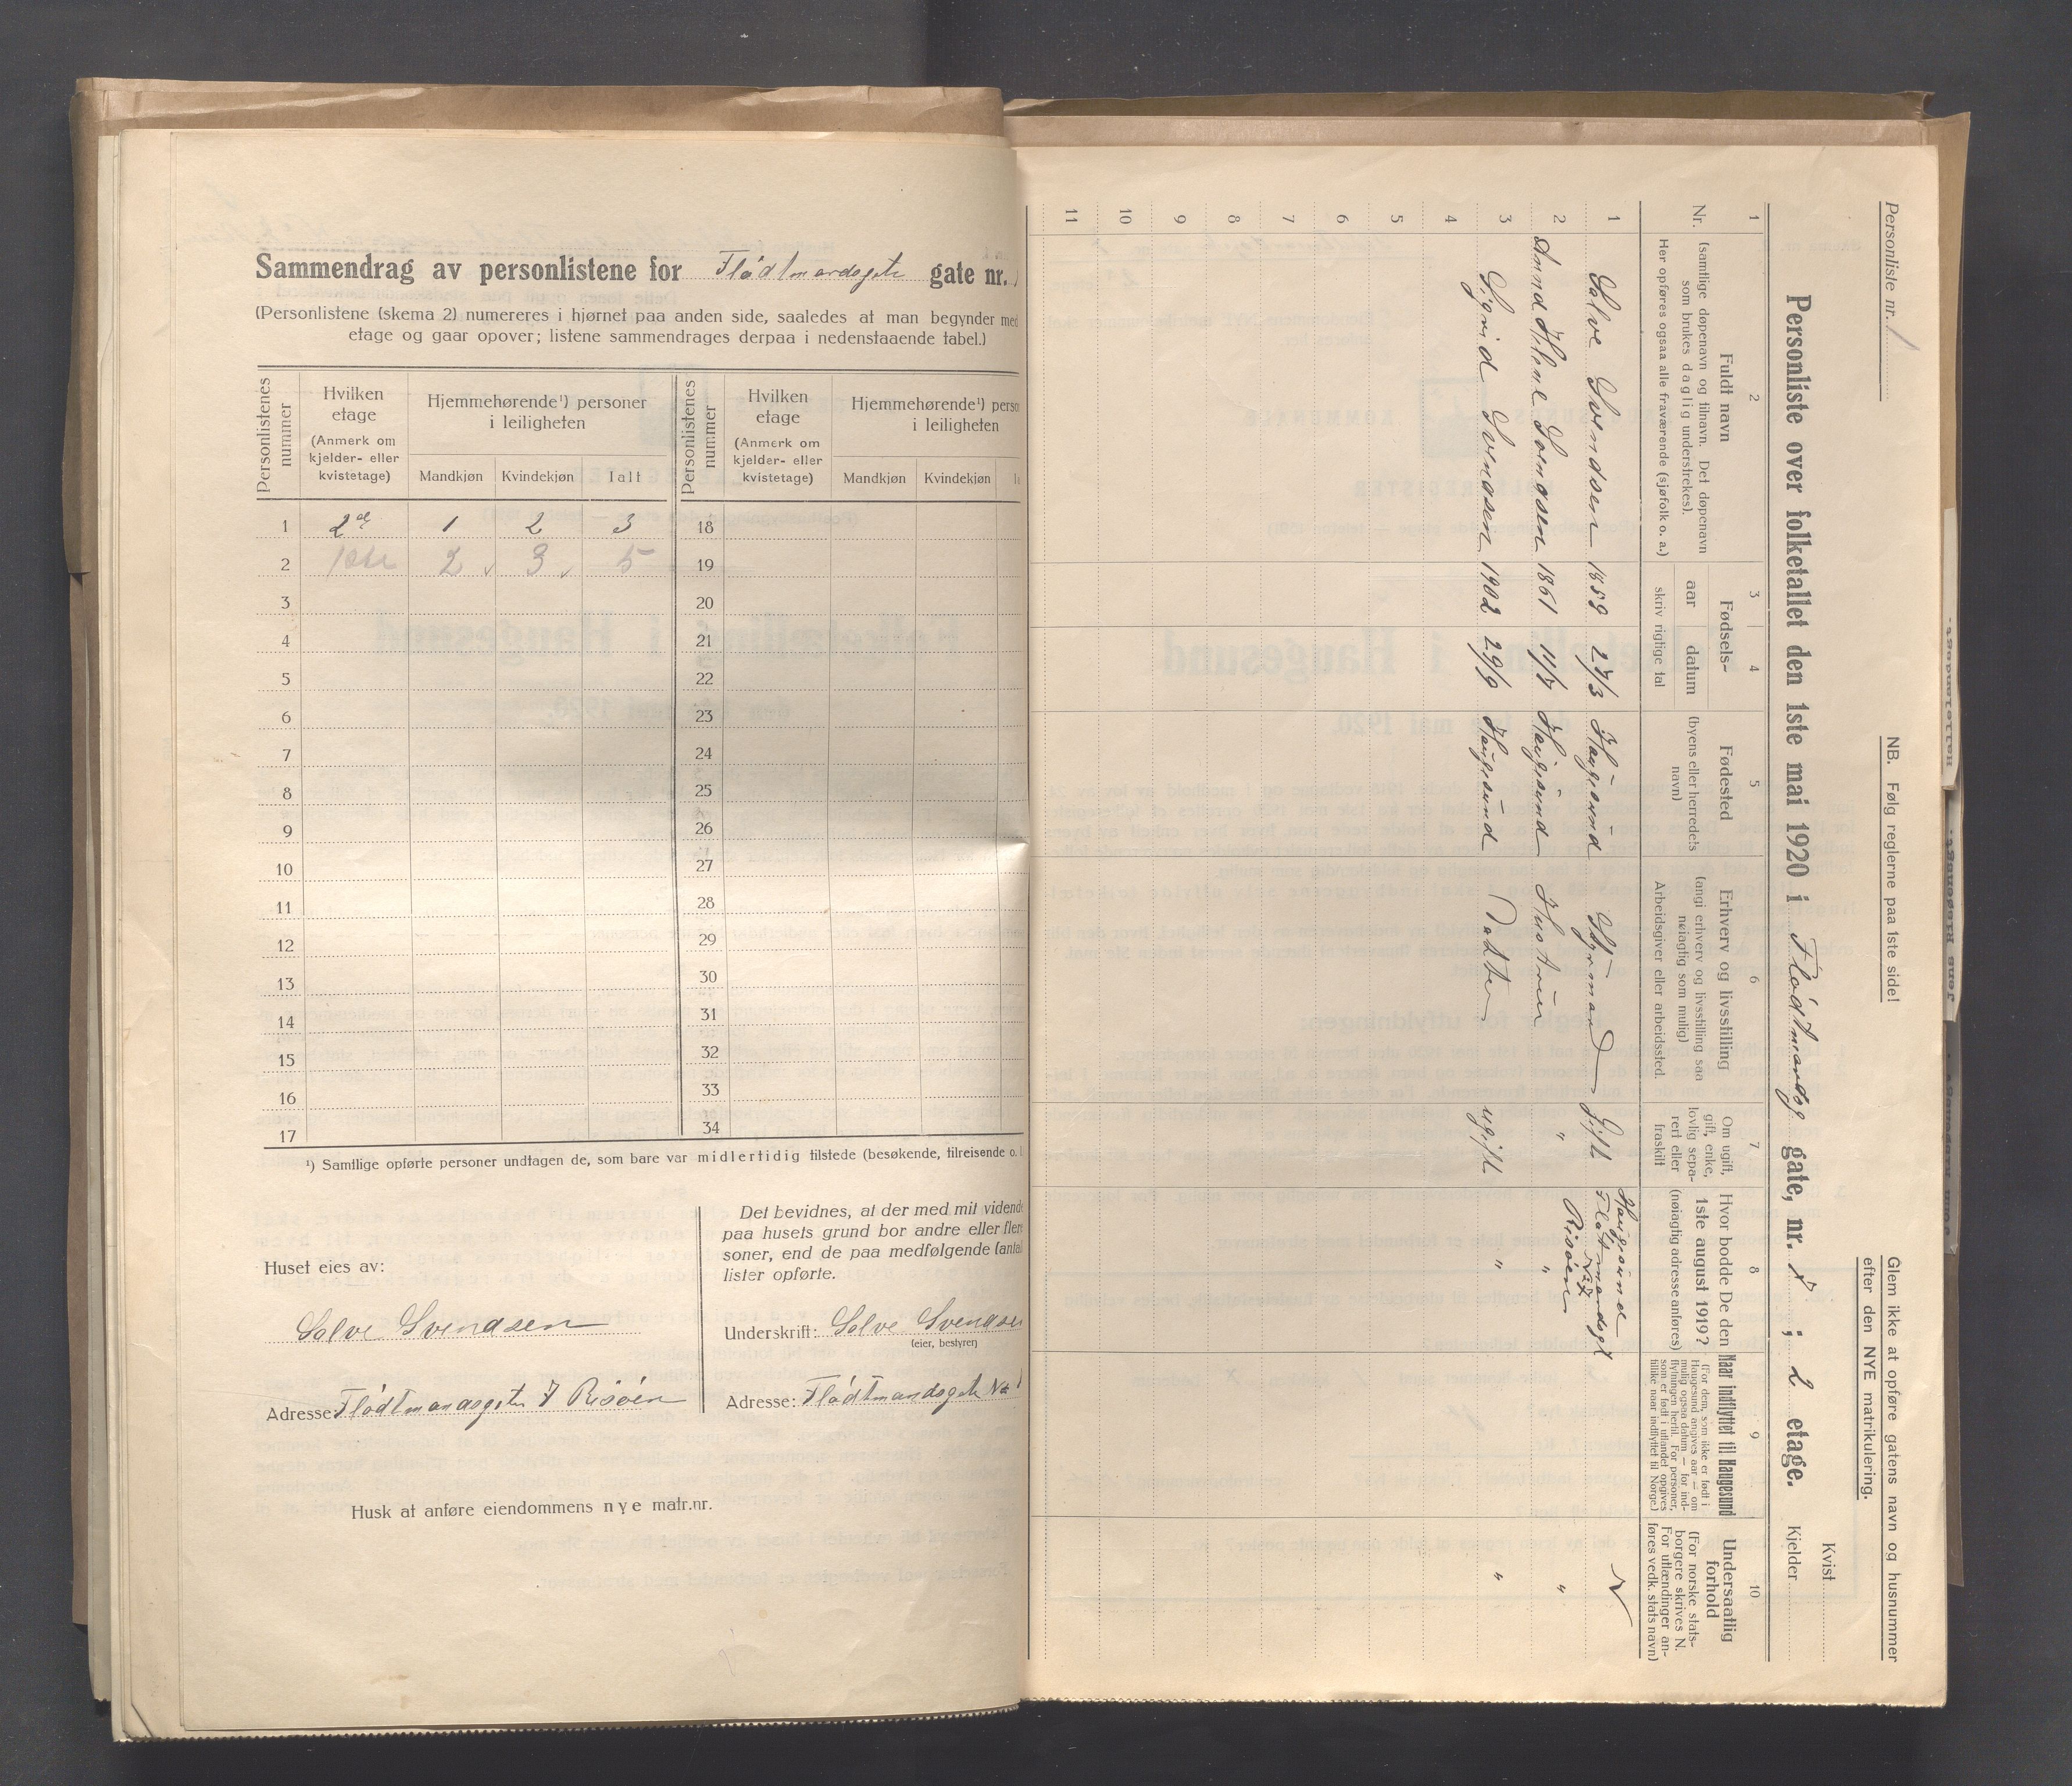 Sammendrag av personlistene for Flødtmandsgate gate nr.
(Personlistene (skema 2) numereres i hjørnet paa anden side, saaledes at man begynder med
etage og gaar opover; listene sammendrages derpaa i nedenstaaende tabel.)
Personlistenes nummer
Hvilken etage (Anmerk om kjelder- eller kvistetage)
Hjemmehørende¹) personer i leiligheten
Mandkjøn Kvindekjøn Ialt
Personlistenes nummer
Hvilken etage (Anmerk om kjelder- eller kvistetage)
Hjemmehørende¹) perso
i leiligheten
Mandkjøn Kvindekjøn
1 2de 1 2 3 18
2 1ste 2 3 5 19
3 20
4 21
5 22
6 23
7 24
8 25
9 26
10 27
11 28
12 29
13 30
14 31
15 32
16 33
17 34
¹) Samtlige opførte personer undtagen de, som bare var midlertidig tilstede (besøkende, tilreisende o. l
Huset eies av:
Solve Svendsen
Adresse: Flødtmandsgate 7 Risøen
Det bevidnes, at der med mit vidende
paa husets grund bor andre eller fler
soner, end de paa medfølgende (antal
lister opførte.
Underskrift: Solve Svendsen
(eier, bestyrer)
Adresse: Flødtmandsgate No
Husk at anføre eiendommens nye matr.nr.
Personliste nr. 1
NB. Følg reglerne paa 1ste side!
Glem ikke at opføre gatens navn og husnummer
efter den NYE matrikulering.
Kvist
Personliste over folketallet den 1ste mai 1920 i Flødtmandsg gate, nr. 7 ; 2 etage. Kjelder
1 2 3 4 5 6 7 8 9 10
Nr.
Fuldt navn
(samtlige døpenavn og tilnavn. Det døpenavn
som brukes daglig understrekes).
Her opføres ogsaa alle fraværende (sjøfolk o. a.)
Fødsels-
aar datum
skriv rigtige tal
Fødested
(byens eller herredets
navn)
Erhverv og livsstilling
(angi erhverv og livsstilling saa
nøiagtig som mulig)
Arbeidsgiver eller arbeidssted.
Om ugift,
gift, enke,
lovlig sepa-
rert eller
fraskilt
Hvor bodde De den
1ste august 1919?
(nøiagtig adresse anføres)
Naar indflyttet til Haugesund
(For dem, som ikke er født i
Haugesund angives aar — om
mulig ogsaa datum — for ind-
flytningen hertil. For personer,
som er født i utlandet opgives
tillike naar indflyttet til Norge.)
Undersaatlig
forhold
(For norske stats-
borgere skrives N.
For utlændinger an-
føres vedk. stats navn)
1 Solve Svendsen 1859 27/3 Haugesund Styrmand Gift Haugesund Flødtmandsgt No 7 Risøen N
2 Anna Helene Svendsen 1861 14/7 Haugesund Hustruen " " "
3 Sigrid Svendsen 1902 29/9 Haugesund Datter ugift " "
4
5
6
7
8
9
10
11